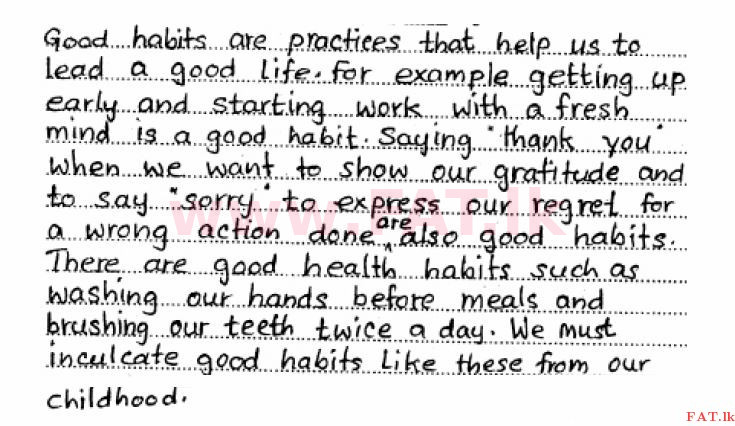 Good habits are practices that help us to
lead a good life. for example getting up
early and starting work with a fresh
mind is a good habit. Saying "thank you"
when we want to show our gratitude and
to say "sorry" to express our regret for
www.FAT.lk
a wrong action done are also good habits.
There are good health habits such as
washing our hands before meals and
brushing our teeth twice a day. We must
inculcate good habits like these from our
childhood.
FAT.lk